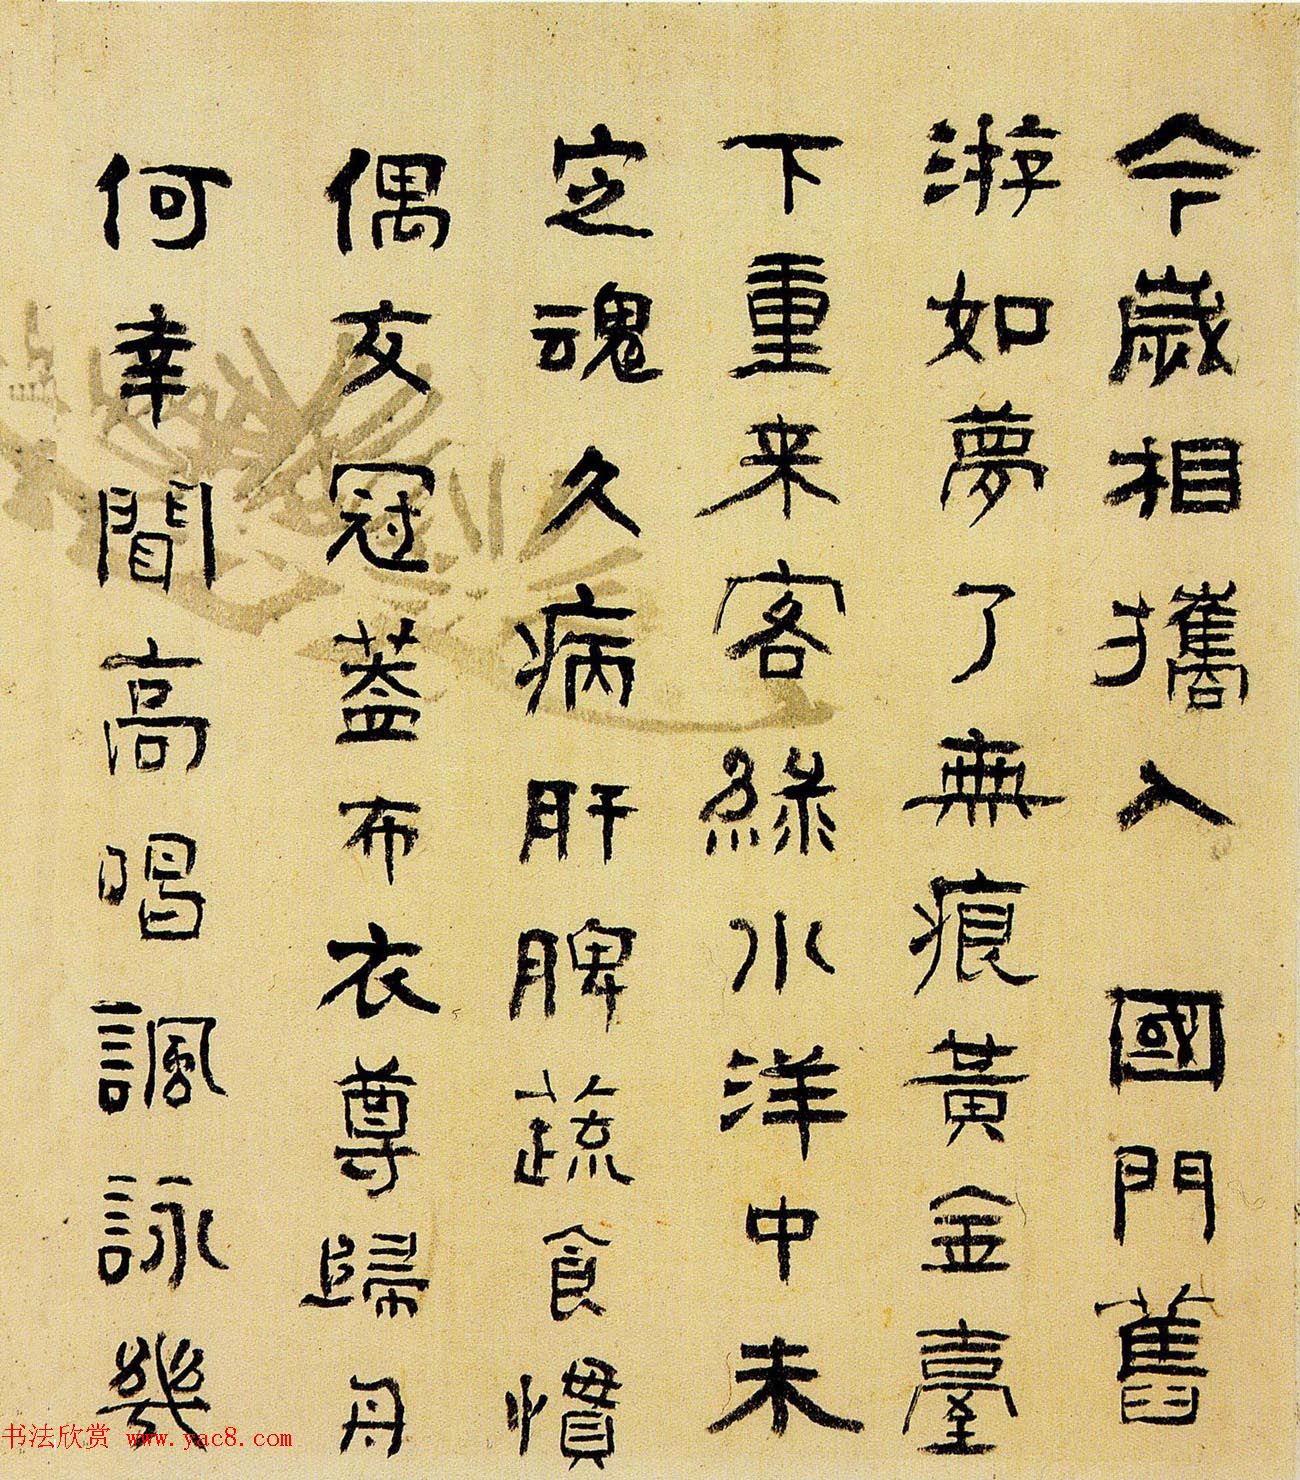 今歲相攜入國門舊
游如夢了無痕黃金臺
下重来客綠水洋中未
定魂久病肝脾蔬食慣
偶友冠蓋布衣尊歸舟
何幸聞高唱諷詠幾
书法欣赏 www.yac8.com